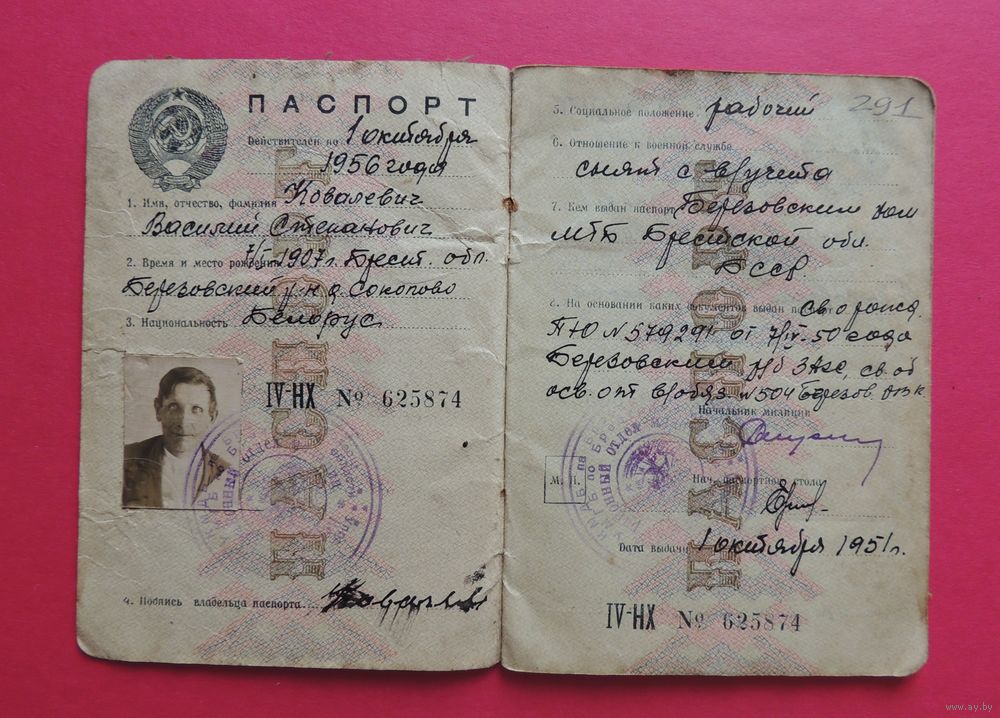 ПАСПОРТ
Действителен по 1 октября
1956 года
1. Имя, отчество, фамилия Ковалевич
Василий Степанович
2. Время и место рождения 7/I-1907 г. Брест. обл.
Березовский р-н д. Соколово
3. Национальность Белорус
IV-НХ № 625874
4. Подпись владельца паспорта
291
5. Социальное положение рабочий
6. Отношение к военной службе
снят с в/учета
7. Кем выдан паспорт Березовским
МГБ Брестской обл.
БССР
8. На основании каких документов выдан паспорт св. о рожд.
II-Ю № 579291 от 7/IV-50 года
Березовским ЗАГС, св. об
осв. от в/обяз. № 504 Березов.
Начальник милиции
М. П.
Нач. паспортного стола
Дата выдачи 1 октября 1951 г.
IV-НХ № 625874
ПАСПОРТ
ПАСПОРТ
www.ay.by